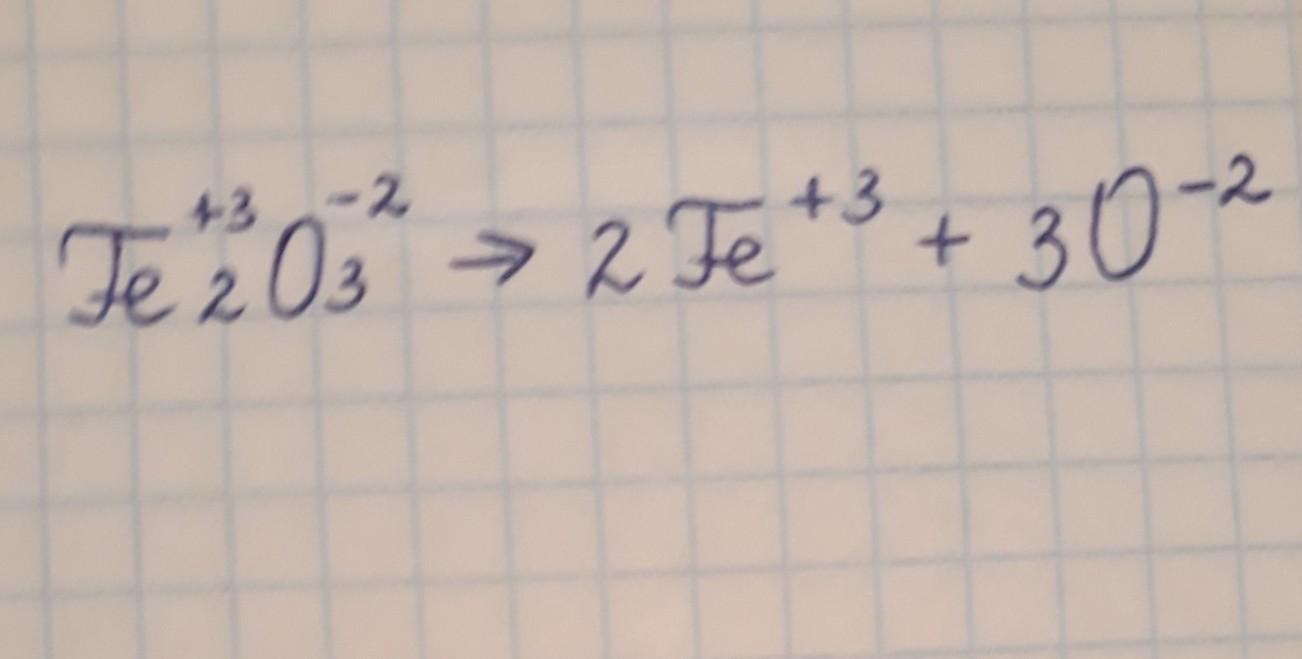 Fe₂⁺³O₃⁻² → 2Fe⁺³ + 3O⁻²